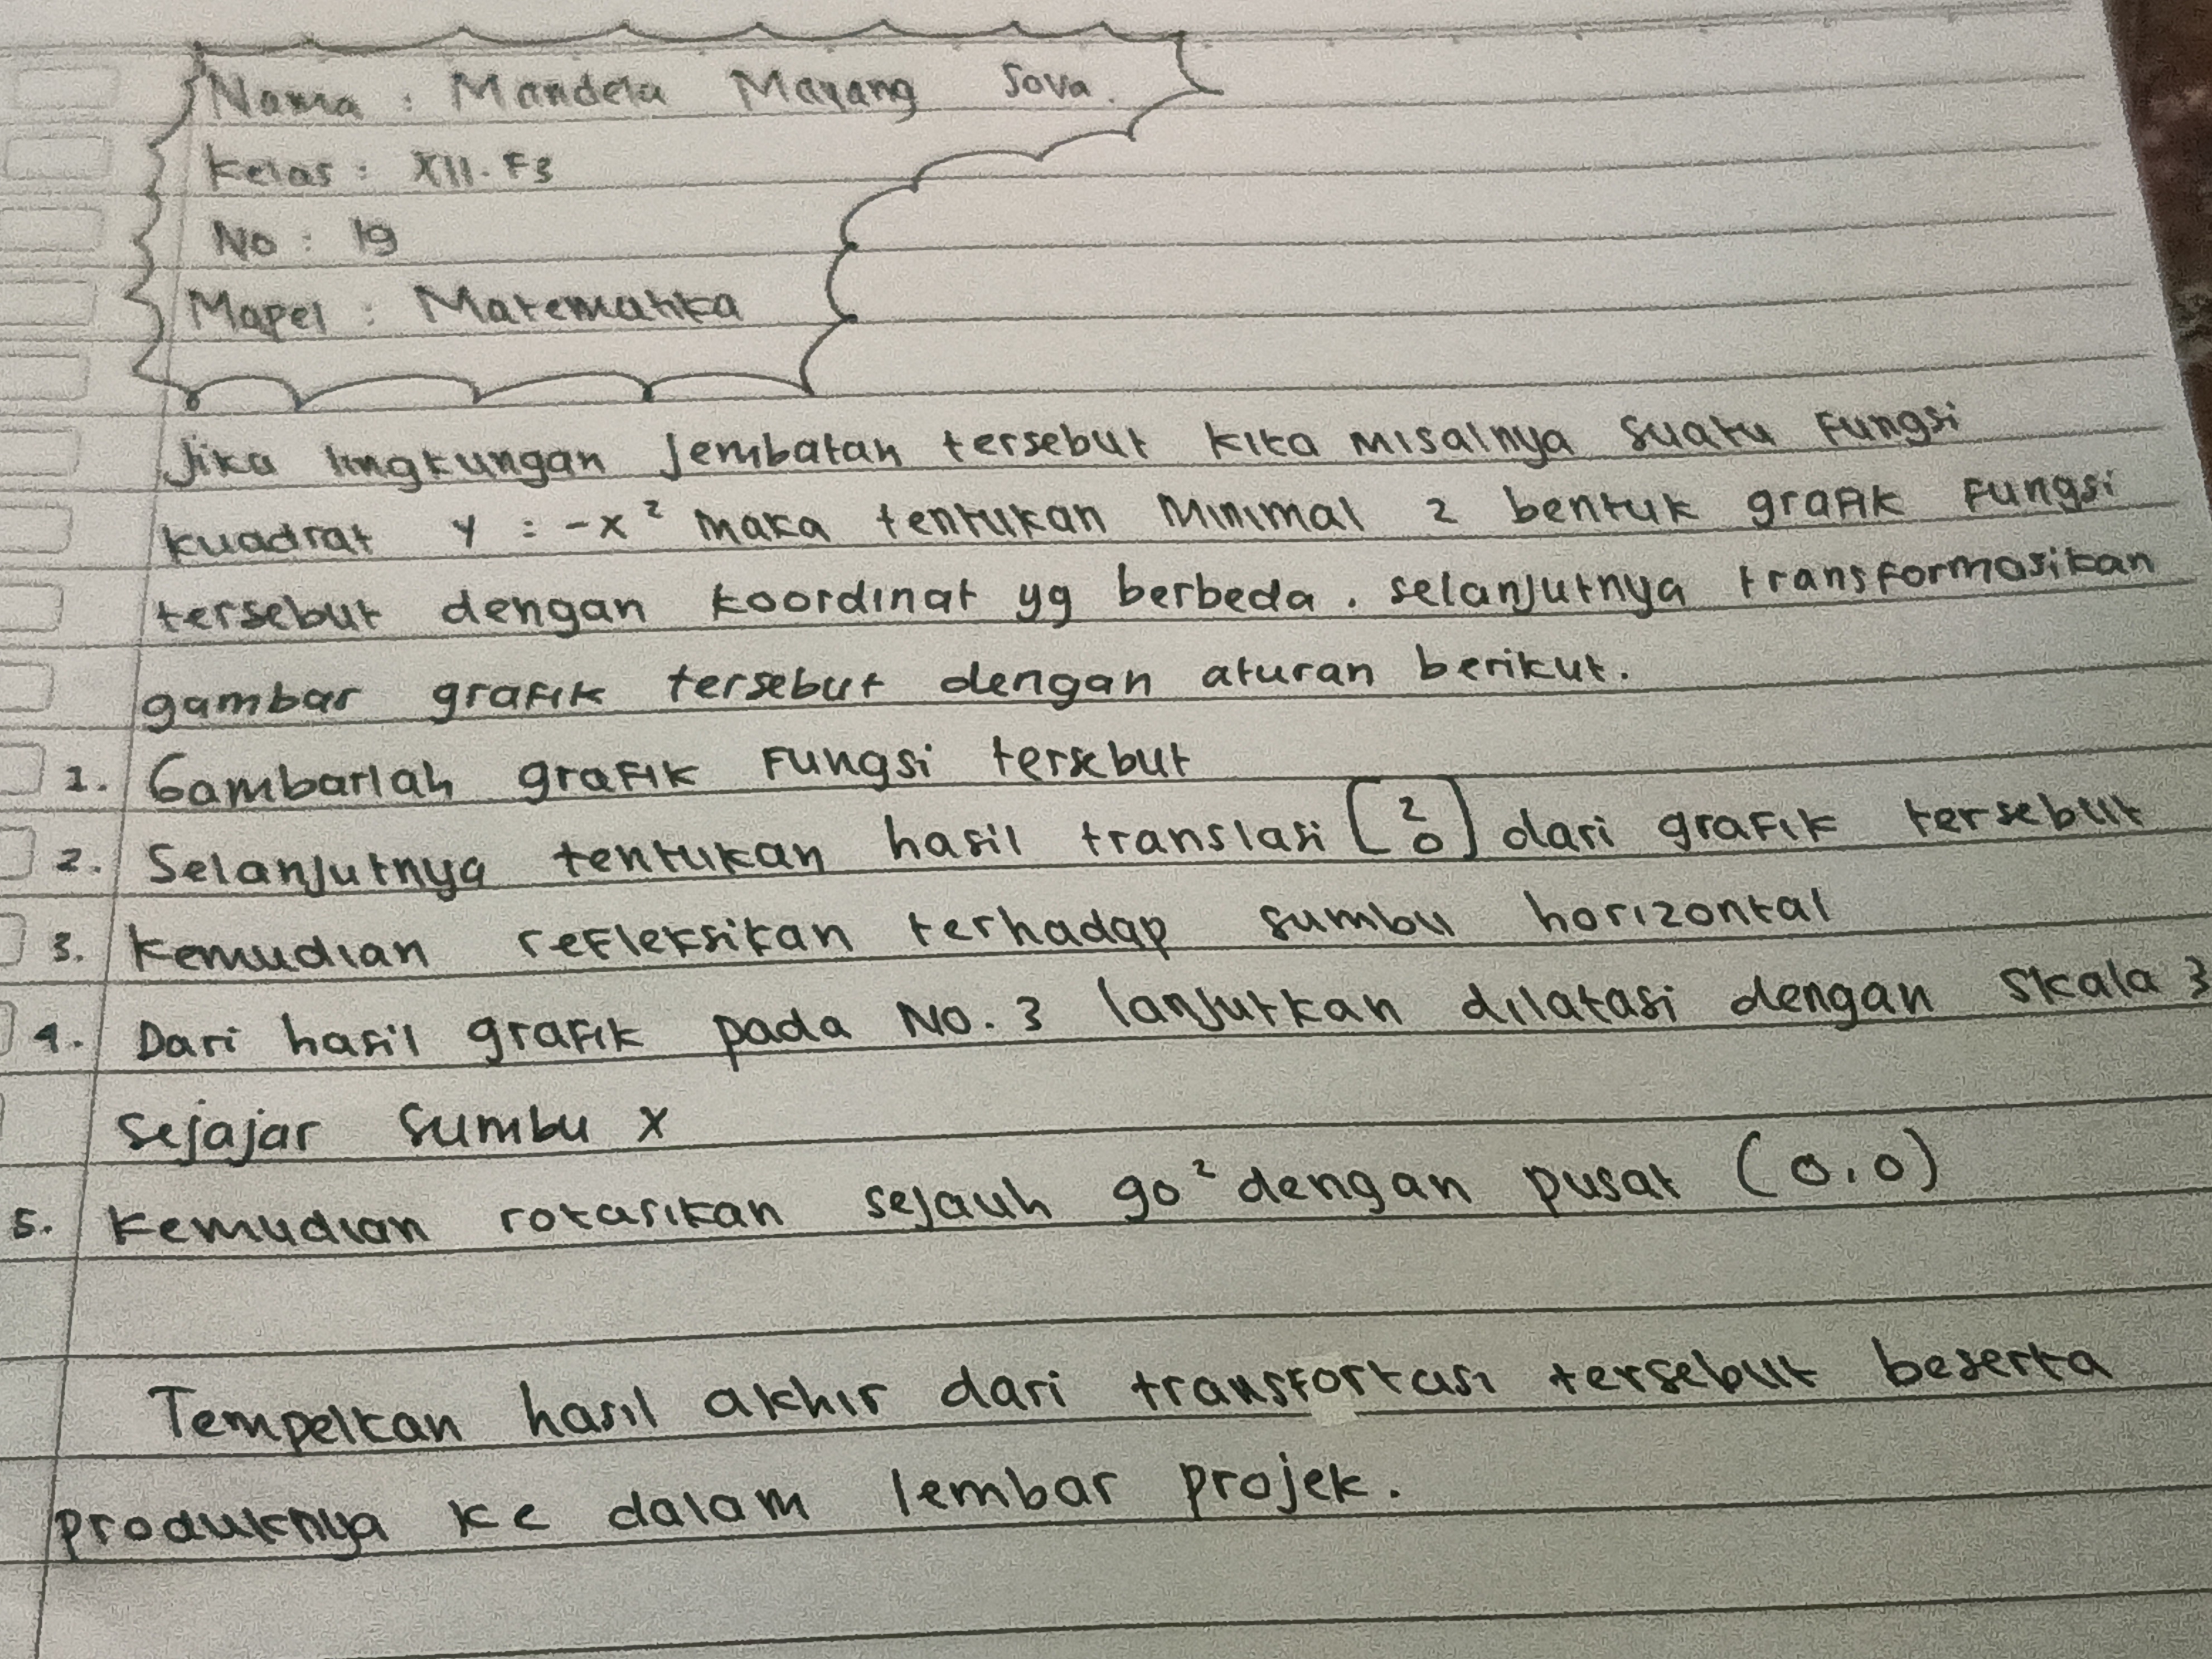 Nama : Mandela Mayang Sova.
Kelas : XII. F3
No : 19
Mapel : Matematika
Jika lingkungan Jembatan tersebut kita misalnya suatu fungsi
kuadrat y = -x² maka tentukan minimal 2 bentuk grafik fungsi
tersebut dengan koordinat yg berbeda. selanjutnya transformasikan
gambar grafik tersebut dengan aturan berikut.
1. Gambarlah grafik fungsi tersebut
2. Selanjutnya tentukan hasil translasi [2 0] dari grafik tersebut
3. Kemudian refleksikan terhadap sumbu horizontal
4. Dari hasil grafik pada No. 3 lanjutkan dilatasi dengan skala 3
sejajar sumbu x
5. Kemudian rotasikan sejauh 90² dengan pusat (0,0)
Tempelkan hasil akhir dari transfortasi tersebut beserta
produknya ke dalam lembar projek.